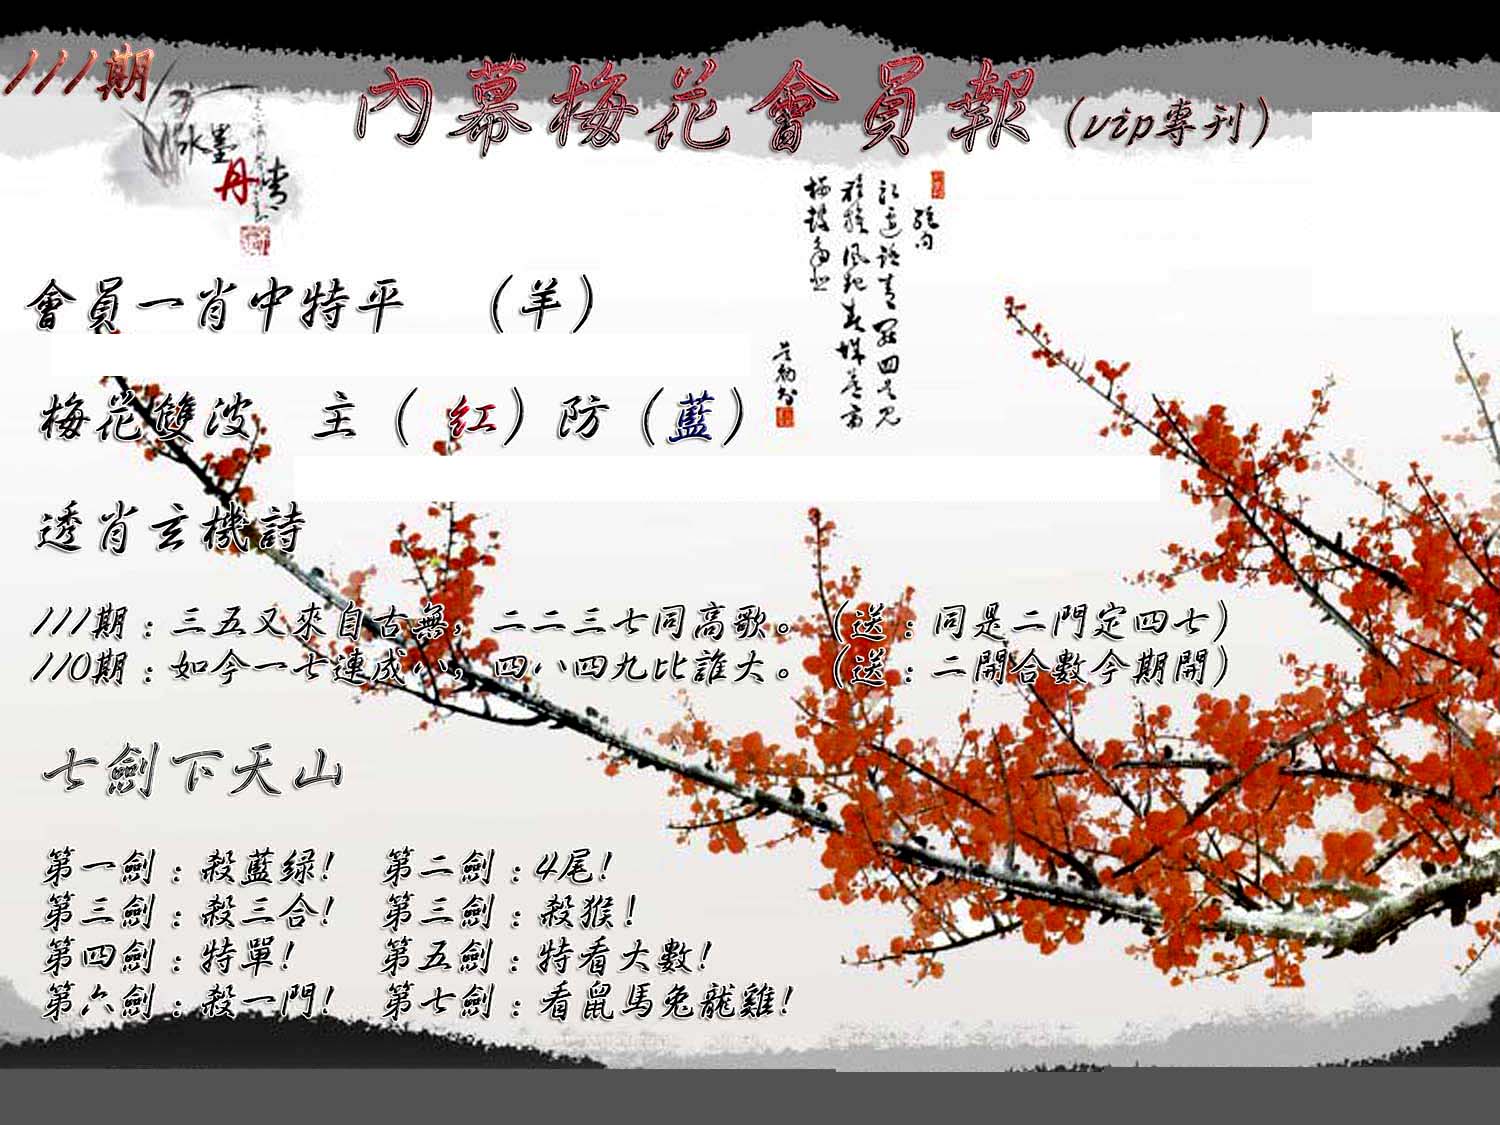 111期
內幕梅花會員報（vip專刊）
水墨
丹青
絕句
會員一肖中特平　（羊）
梅花雙波　主（紅）防（藍）
透肖玄機詩
111期：三五又來自古無，二二三七同高歌。（送：同是二門定四七）
110期：如今一七連成八，四八四九比誰大。（送：二開合數今期開）
七劍下天山
第一劍：殺藍綠！　第二劍：4尾！
第三劍：殺三合！　第三劍：殺猴！
第四劍：特單！　第五劍：特看大數！
第六劍：殺一門！　第七劍：看鼠馬兔龍雞！